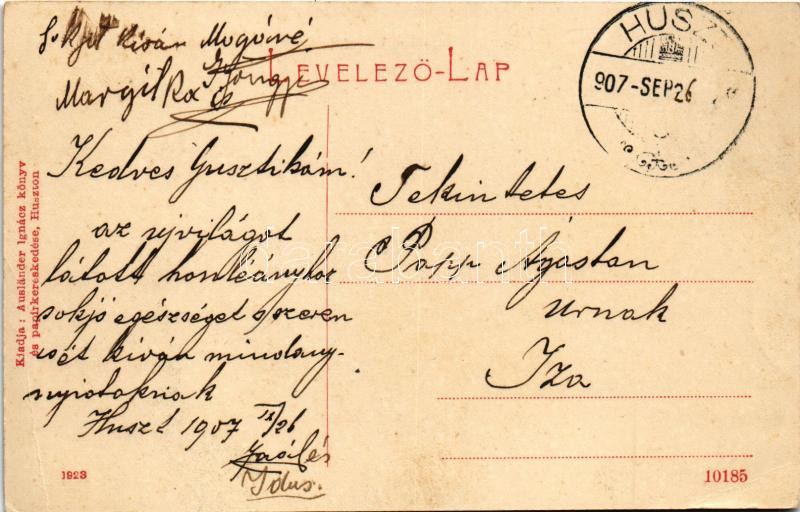 kíván Mogórné
Margitka és Gönczi
LEVELEZŐ-LAP
HUSZ
907-SEP 26
Kedves Gusztikám!
az ujvilágot
látott honleányhoz
sok jó egészséget s szeren
sét kíván mindany-
nyiotoknak
Huszt 1907 IX/26
és
Idus.
Tekintetes
Papp Ágoston
urnak
Iza
Kiadja: Ausländer Ignácz könyv
és papirkereskedése, Huszton
1923
10185
darabanth